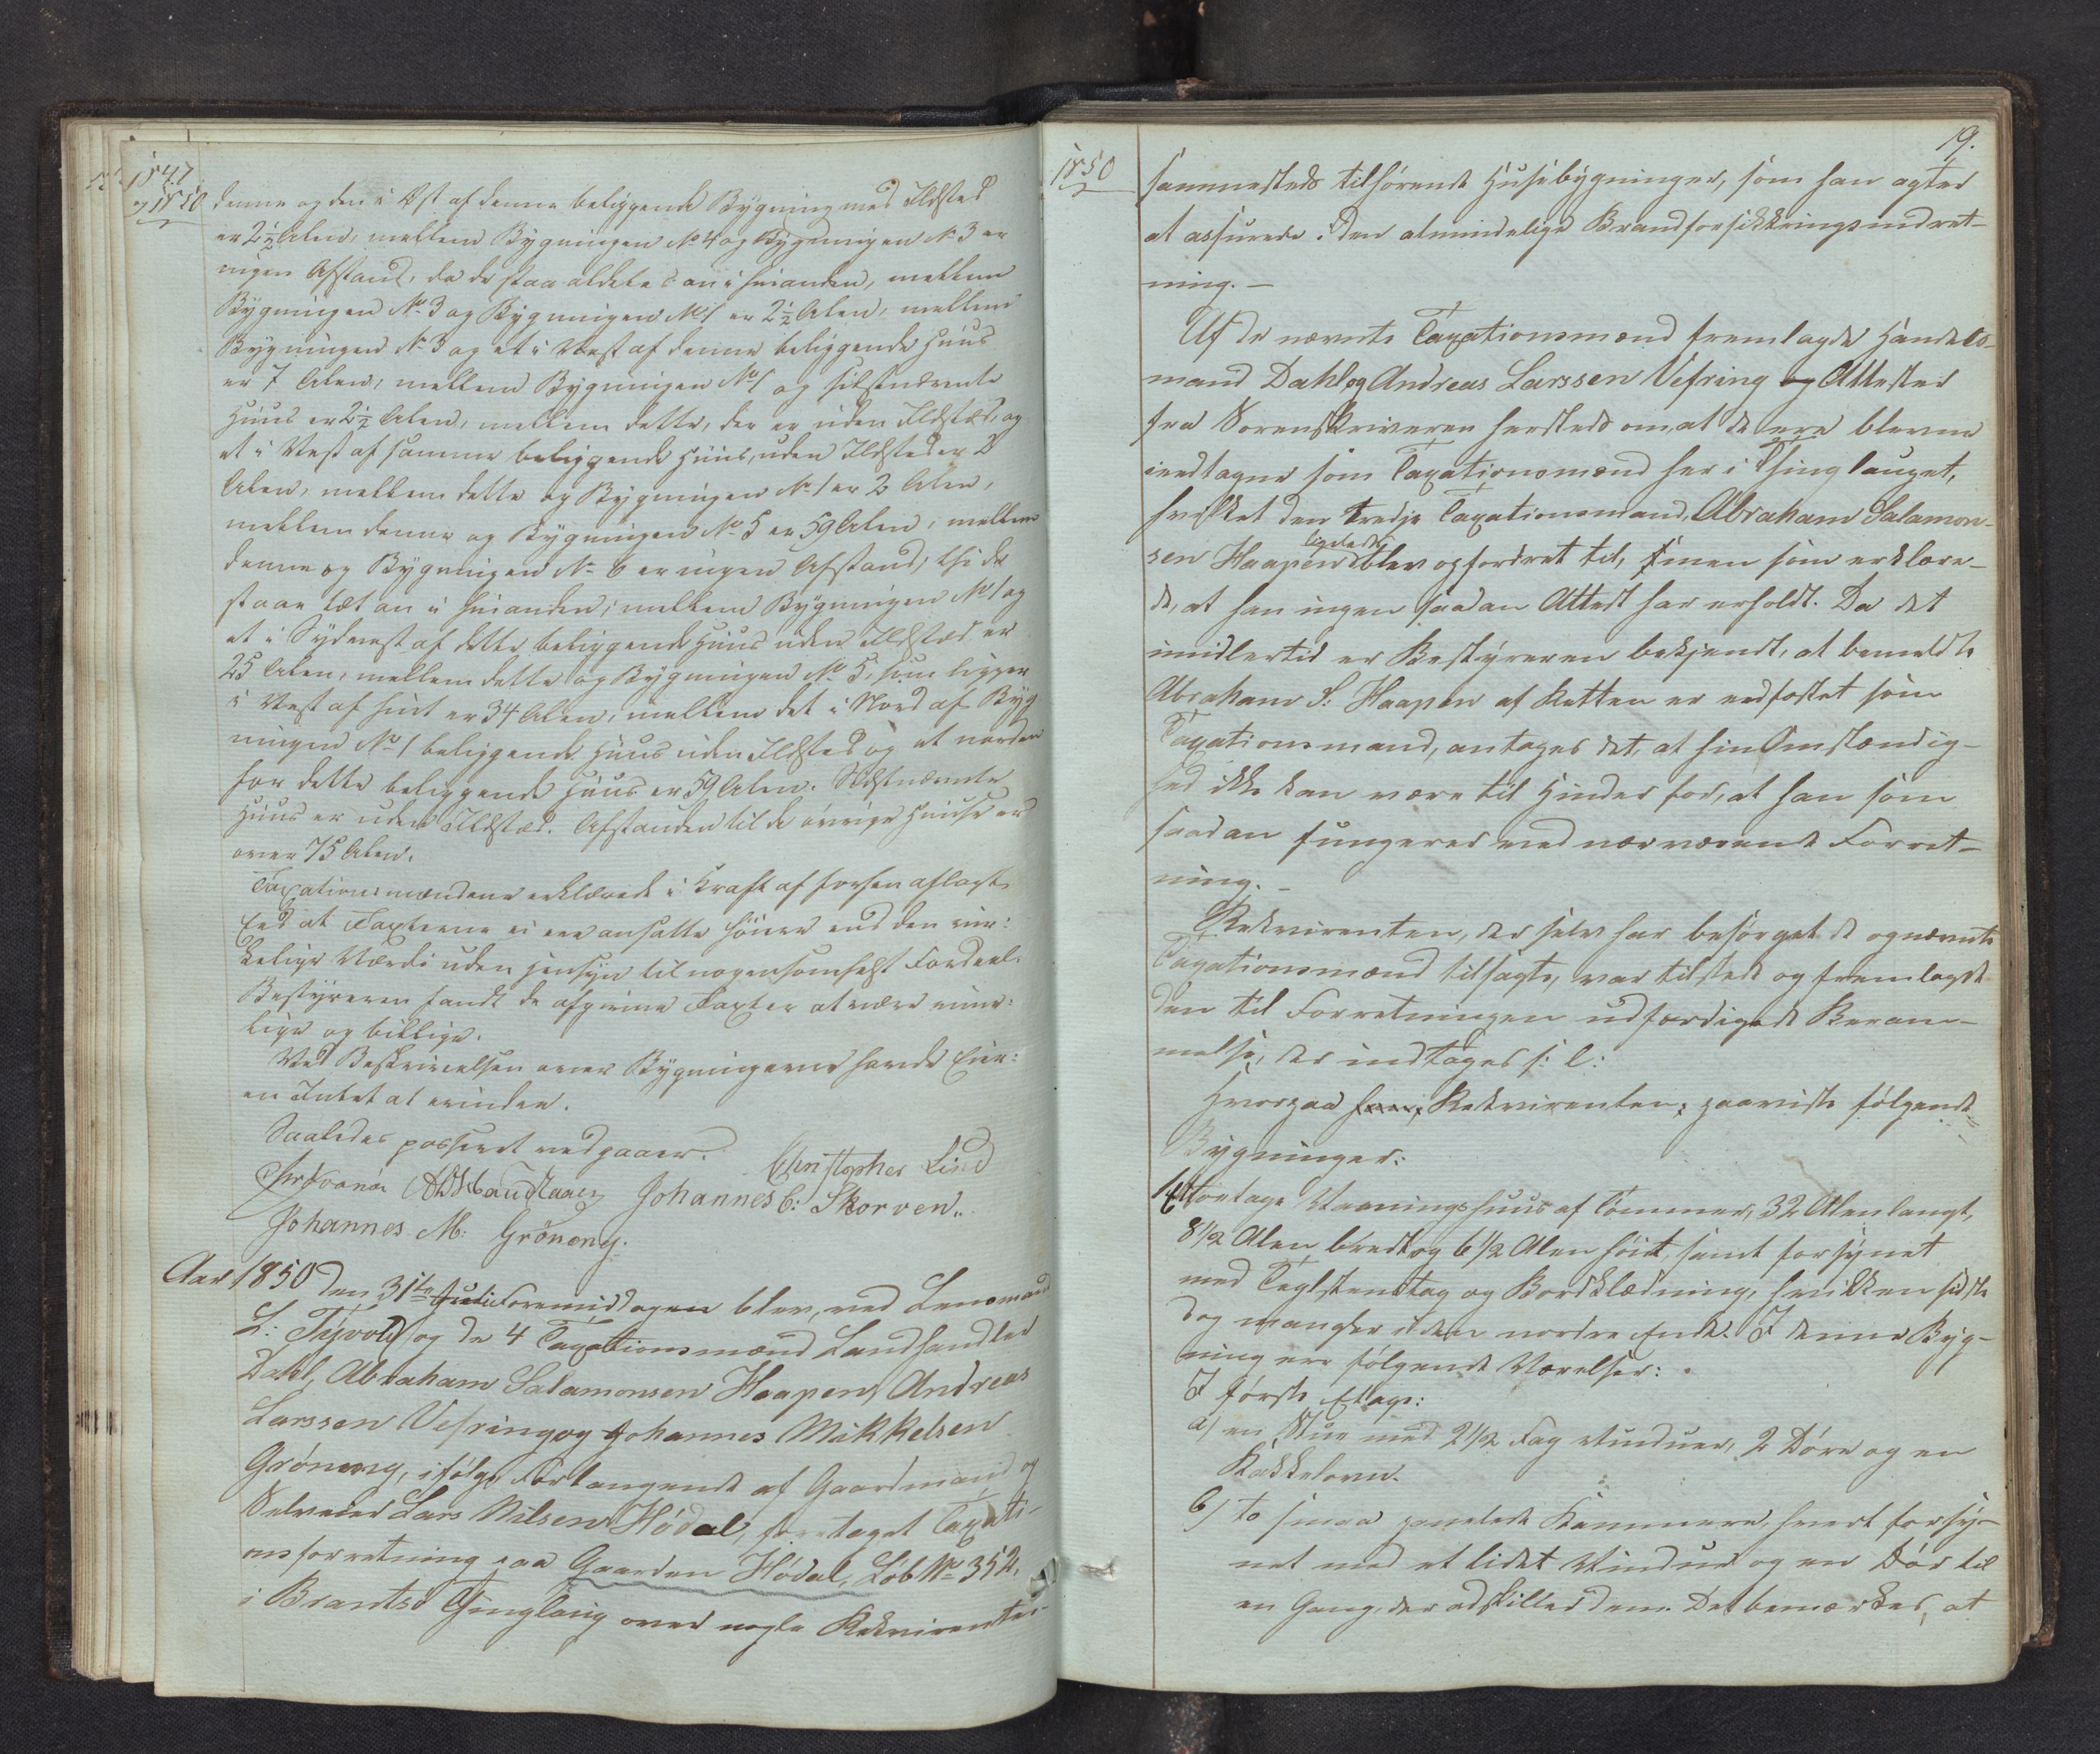 1847
og 1850
denne og den i Øst af denne beliggende Bygning med Ildsted
er 2½ Alen, mellem Bygningen No 4 og Bygningen No 3 er
ingen Afstand, da de staa aldeles an i hinanden, mellem
Bygningen No 3 og Bygningen No 1 er 2½ Alen, mellem
Bygningen No 3 og et i Vest af denne beliggende Huus
er 7 Alen, mellem Bygningen No 1 og sidstnævnte
Huus er 2½ Alen, mellem dette, der er uden Ildsted, og
et i Vest af samme beliggende Huus, uden Ildsted er 2
Alen, mellem dette og Bygningen No 1 er 2 Alen,
mellem denne og Bygningen No 5 er 59 Alen, mellem
denne og Bygningen No 6 er ingen Afstand, thi de
staae tæt an i hinanden, mellem Bygningen No 1 og
et i Sydvest af dette beliggende Huus uden Ildsted er
25 Alen, mellem dette og Bygningen No 5, som ligger
i Vest af hint er 34 Alen, mellem det i Nord af Byg
ningen No 1 beliggende Huus uden Ildsted og et norden
for dette beliggende Huus er 59 Alen. Sidstnævnte
Huus er uden Ildsted. Afstanden til de øvrige Huuse er
over 75 Alen.
Taxationsmændene erklærede i Kraft af forhen aflagte
Eed at Taxterne ei ere ansatte høiere end den vir:
kelige Værdi uden Hensyn til nogensomhelst Fordeel.
Bestyreren fandt de afgivne Taxter at være rime:
lige og billige.
Ved Beskrivelsen over Bygningerne havde Eier:
en Intet at erindre.
Saaledes passeret vedgaaer.
Christopher Lind
Johannes C: Skorven.
Johannes M: Grønæng.
Aar 1850 den 31te Juli Formiddagen blev, ved Lensmand
L: Tyvold og de 4 Taxationsmænd Landhandler
Dahl, Abraham Salamonsen Haapen, Andreas
Larssen Vefring og Johannes Mikkelsen
Grønæng, ifølge Forlangende af Gaardmand og
Selveier Lars Nilsen Hødal, foretaget Taxati-
onsforretning paa Gaarden Hødal, Løb No 352,
i Brantsø Thinglaug over nogle Rekvirenten
1850
19.
sammesteds tilhørende Husebygninger, som han agter
at assurere i den almindelige Brandforsikkringsindret-
ning. —
Af de nævnte Taxationsmænd fremlagde Handels-
mand Dahl og Andreas Larssen Vefring og Attester
fra Sorenskriveren hersteds om, at de ere blevne
eedtagne som Taxationsmænd her i Thinglauget,
hvilket den tredje Taxationsmand, Abraham Salamon-
sen Haapen ligeledes blev opfordret til, men som erklære-
de, at han ingen saadan Attest har erholdt. Da det
imidlertid er Bestyreren bekjendt, at bemeldte
Abraham S: Haapen af Retten er eedfæstet som
Taxationsmand, antages det, at hin Omstændig-
hed ikke kan være til Hinder for, at han som
saadan fungerer ved nærværende Forret-
ning. —
Rekvirenten, der selv har besørget de opnævnte
Taxationsmænd tilsagte, var tilstede og fremlagde
den til Forretningen udfærdigede Beram-
melse, der indtages s: l:
Hvorpaa Rekvirenten paaviste følgende
Bygninger:
1) Toetage Vaaningshuus af Tømmer, 32 Alen langt,
8½ Alen bredt og 6½ Alen høit, samt forsynet
med Teglstenstag og Bordklædning, hvilken sidste
dog mangler i den nordre Ende. I denne Byg-
ning ere følgende Værelser:
I første Etage:
a) en Stue med 2½ Fag Vinduer, 2 Døre og en
Kakkelovn.
b) to smaa panelede Kammere, hvert forsy-
net med et lidet Vindue og en Dør til
en Gang, der adskiller dem. Det bemærkes, at